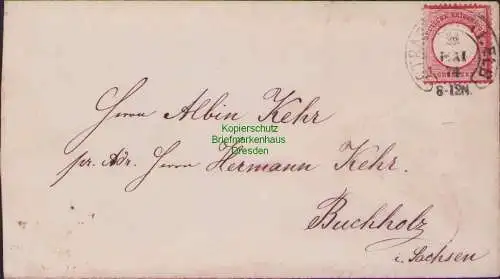 22
MAI
74
8-12N.
Herrn Albin Kehr
pr. Adr. Herrn Hermann Kehr.
Buchholz
i. Sachsen
Kopierschutz
Briefmarkenhaus
Dresden